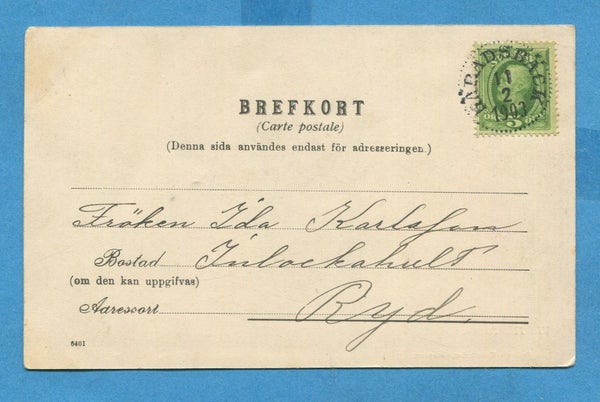 BREFKORT
(Carte postale)
(Denna sida användes endast för adresseringen.)
Fröken Ida Karlsson
Bostad Inlockahult
(om den kan uppgifvas)
Adressort Ryd.
6401
11
2
1903